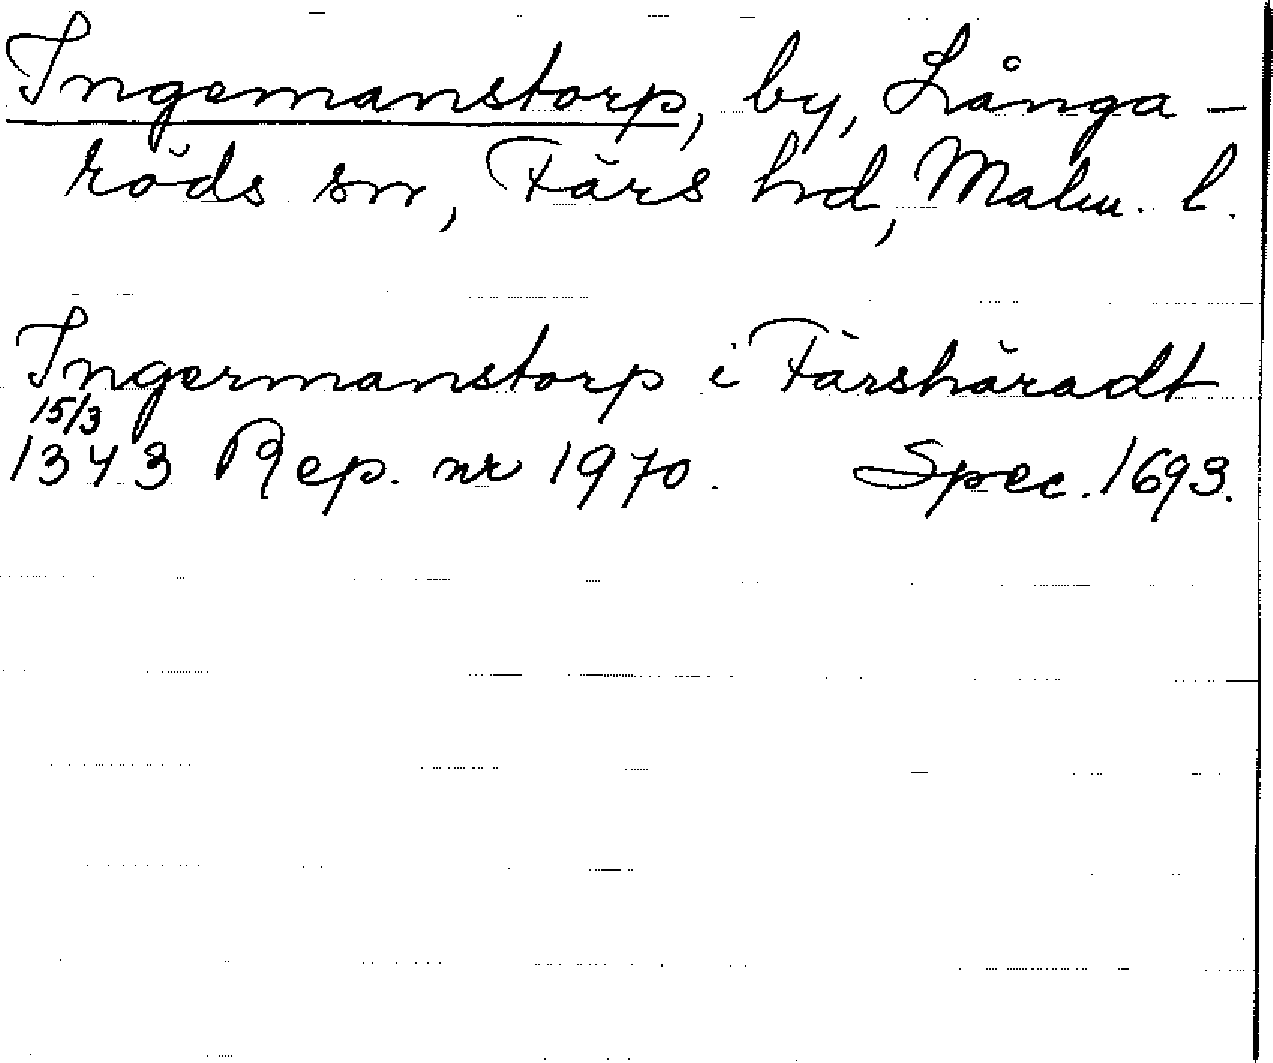 Ingemanstorp, by, Långa-
röds sn, Färs hd, Malm. l.
Ingermanstorp i Färshäradt
15/3
1343 Rep. nr 1970. Spec. 1693.